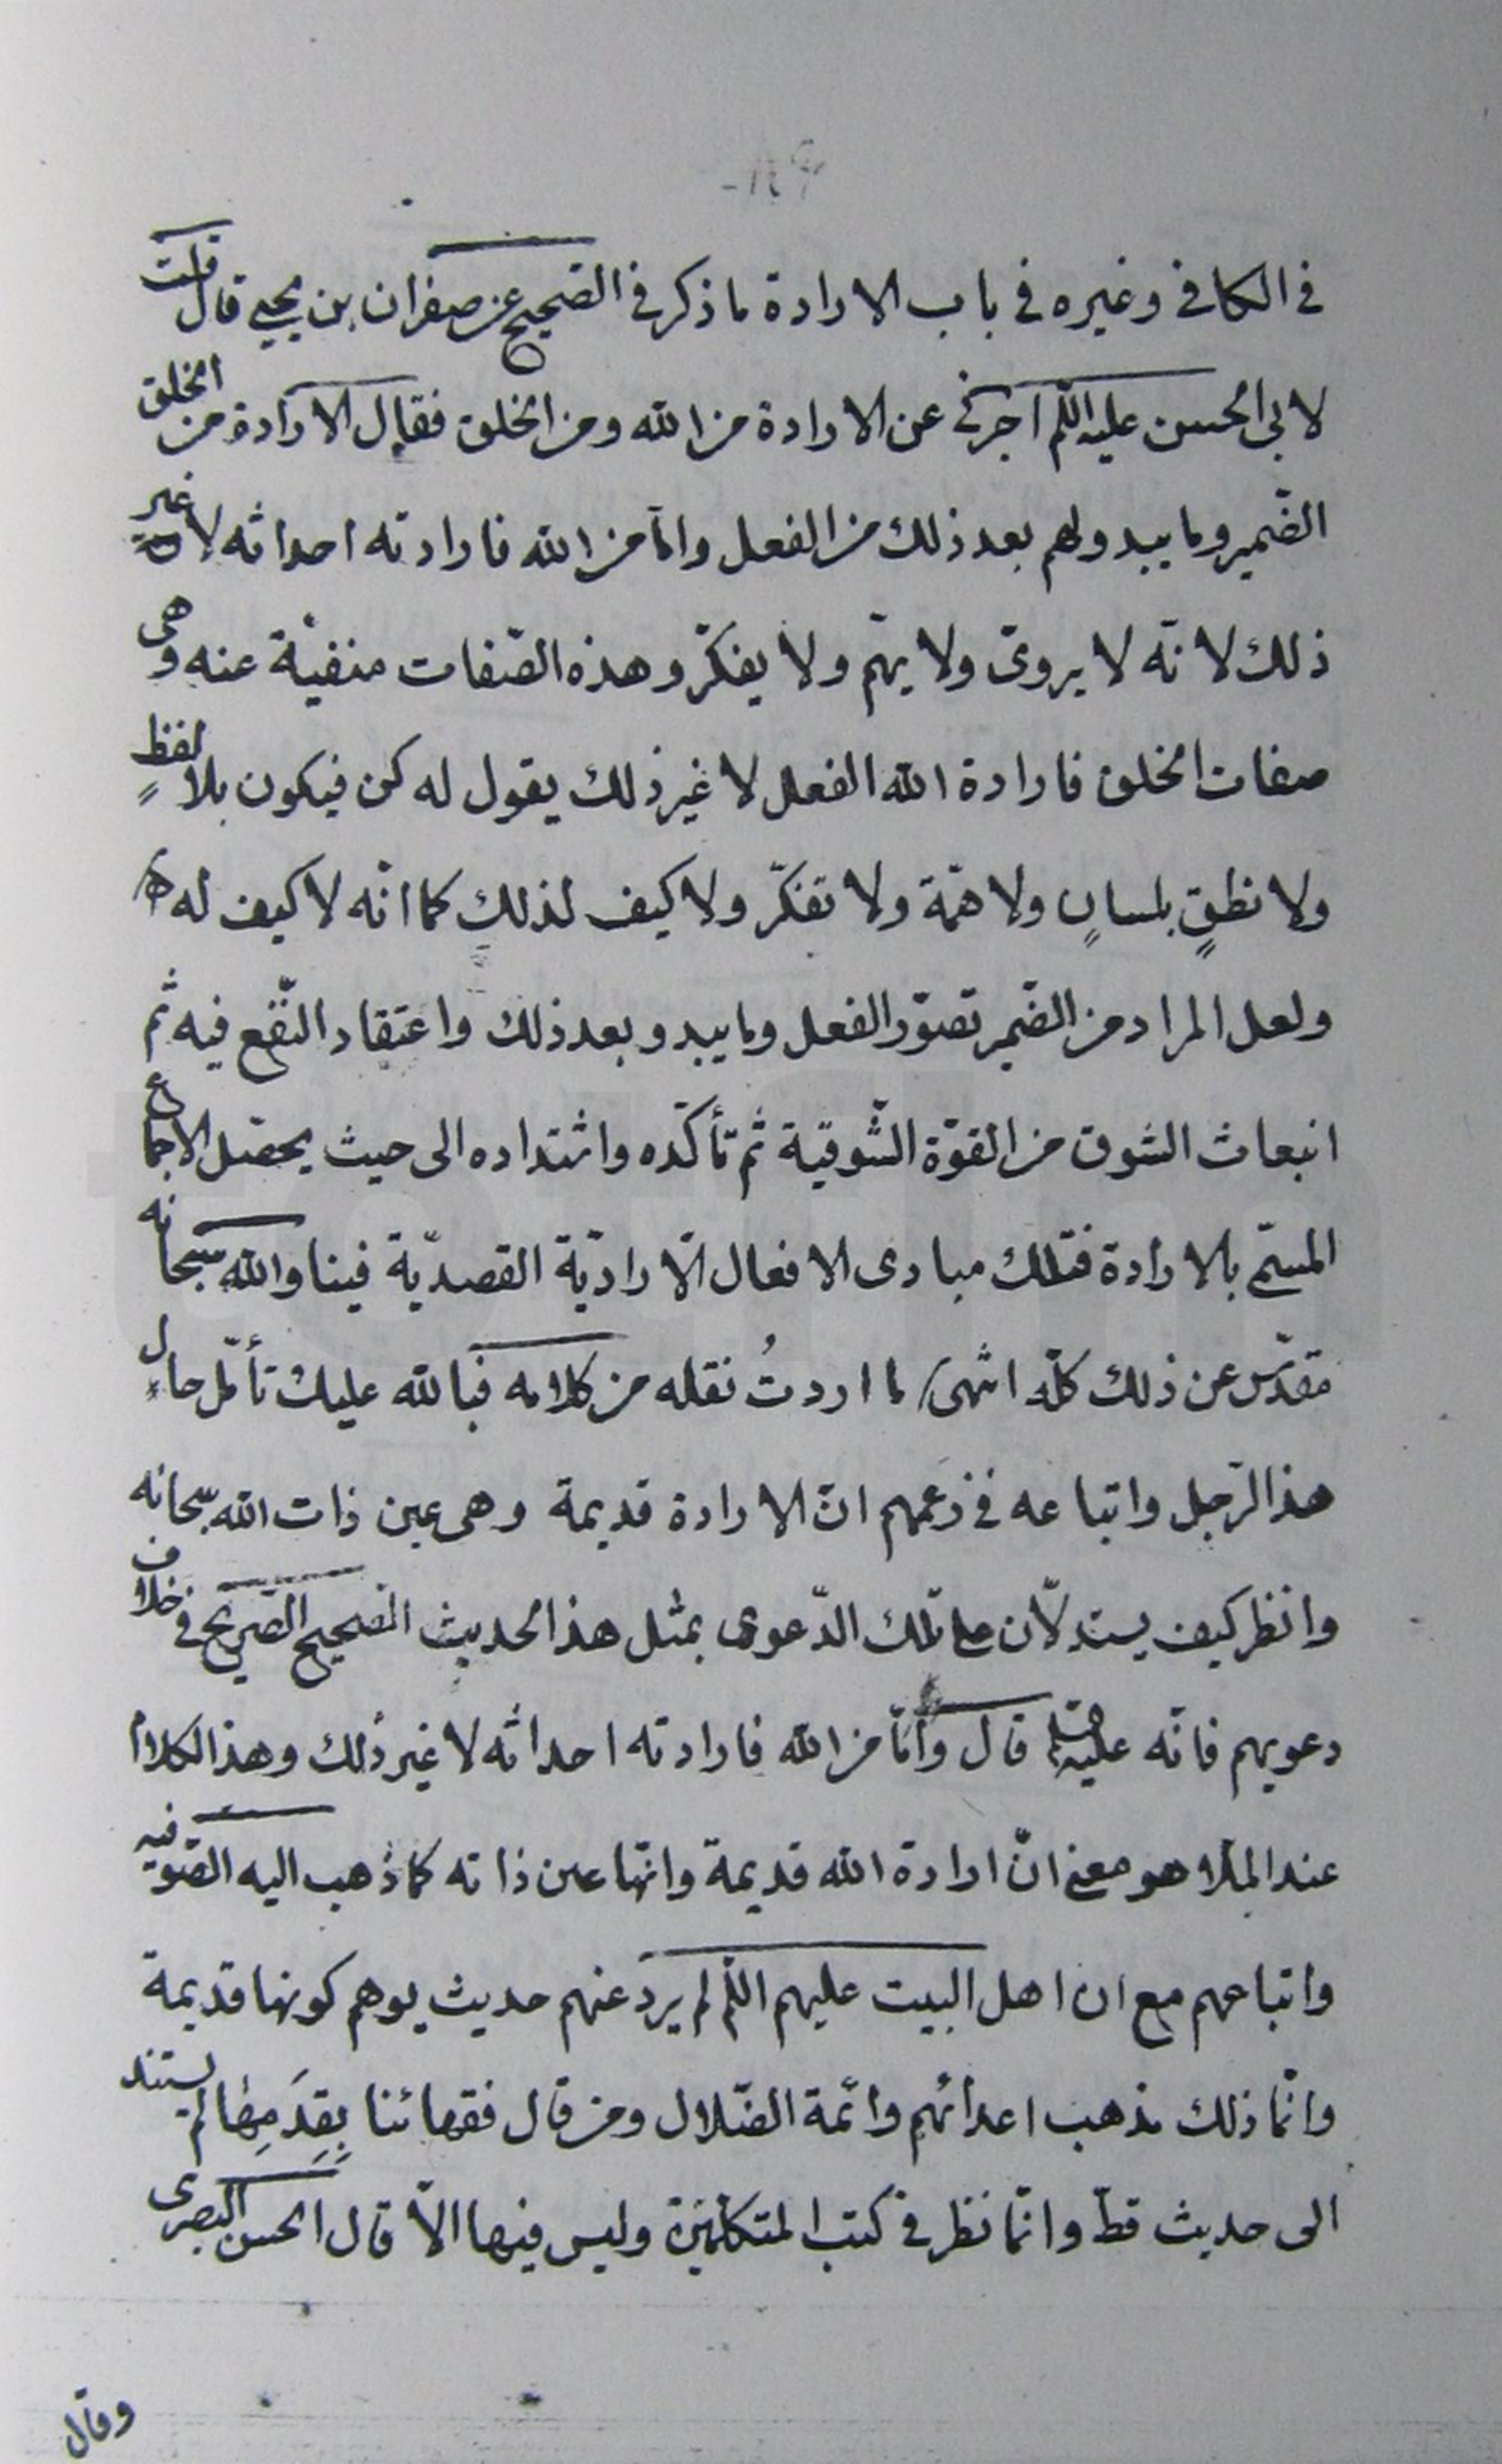 في الكافي وغيره في باب الارادة ما ذكر في الصحيح عن صفوان بن يحيى قال قلت
لابي الحسن عليه اللم اخبرني عن الارادة من الله ومن الخلق فقال الارادة من الخلق
الضّمير وما يبدو لهم بعد ذلك من الفعل وامّا من الله فارادته احداثه لا غير
ذلك لانّه لا يروّى ولا يهمّ ولا يفكّر وهذه الصّفات منفيّة عنه وهى
صفات الخلق فارادة الله الفعل لا غير ذلك يقول له كن فيكون بلا لفظٍ
ولا نطقٍ بلسانٍ ولا همّة ولا تفكّر ولا كيف لذلك كما انّه لا كيف له
ولعل المراد من الضّمير تصوّر الفعل وما يبدو بعد ذلك واعتقاد النّفع فيه ثم
انبعاث الشوق من القوّة الشّوقية ثم تأكّده واشتداده الى حيث يحصل الاجماع
المسمّى بالارادة فتلك مبادى الافعال الاراديّة القصديّة فينا والله سبحانه
مقدّس عن ذلك كلّه انتهى ما اردتُ نقله من كلامه فبالله عليك تأمّل حال
هذا الرّجل واتباعه في زعمهم انّ الارادة قديمة وهى عين ذات الله سبحانه
وانظر كيف يستدلّون على تلك الدّعوى بمثل هذا الحديث الصحيح الصّريح في خلاف
دعويهم فانّه عليه قال وأمّا من الله فارادته احداثه لا غير ذلك وهذا الكلام
عند الملّا هو معنى انّ ارادة الله قديمة وانّها عين ذاته كما ذهب اليه الصّوفيه
واتباعهم مع ان اهل البيت عليهم اللم لم يرد عنهم حديث يوهم كونها قديمة
وانّما ذلك مذهب اعدائهم وائمّة الضّلال ومن قال فقهائنا بِقِدَمِها لم يستند
الى حديث قطّ وانّما نظر في كتب المتكلمين وليس فيها الاّ قال الحسن البصرى
وقال